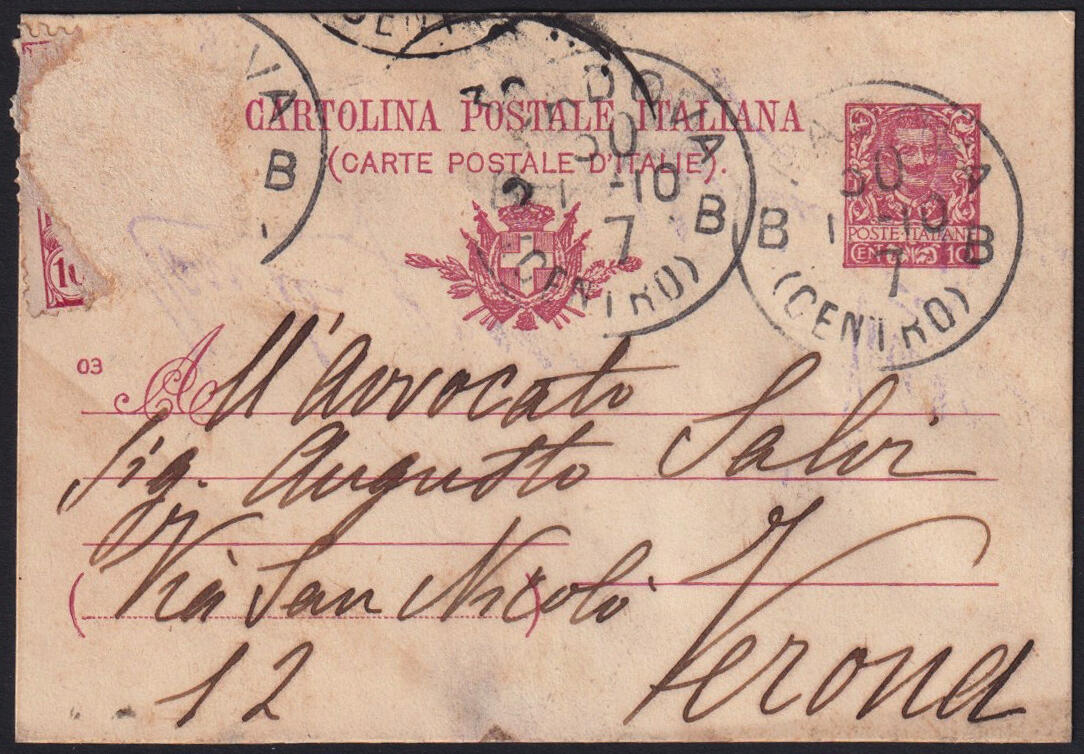 CARTOLINA POSTALE ITALIANA
(CARTE POSTALE D'ITALIE).
POSTE·ITALIANE
CENT 10
PADOVA
30
1 -10
7
B B
(CENTRO)
PADOVA
30
1 -10
7
B
(CENTRO)
VA
B
10
03
All'Avvocato
Sig. Augusto Salvi
Via San Nicolò Verona
12